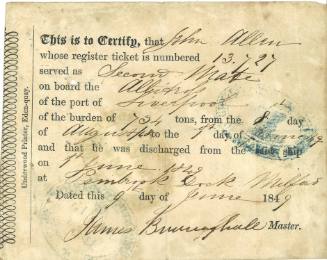 This is to Certify, that John Allen
whose register ticket is numbered 13,727
served as Second Mate
on board the
of the port of Liverpool
of the burden of 734 tons, from the 8 day
of August to the day of
and that he was discharged from the said ship
on 1st June 1849
at Pembroke Dock Milford
Dated this 9 day of June 1849
James Master.
Underwood Printer, Eden-quay.